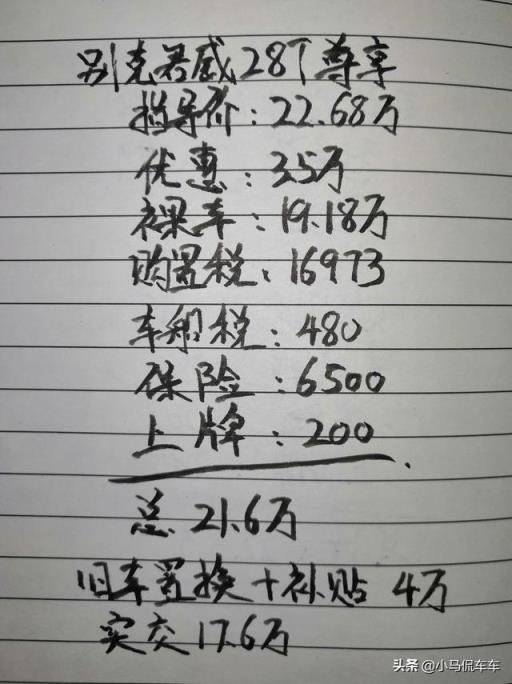 别克君威28T尊享
指导价:22.68万
优惠:3.5万
裸车:19.18万
购置税:16973
车船税:480
保险:6500
上牌:200
总 21.6万
旧车置换+补贴 4万
实交17.6万
头条 @小马侃车车